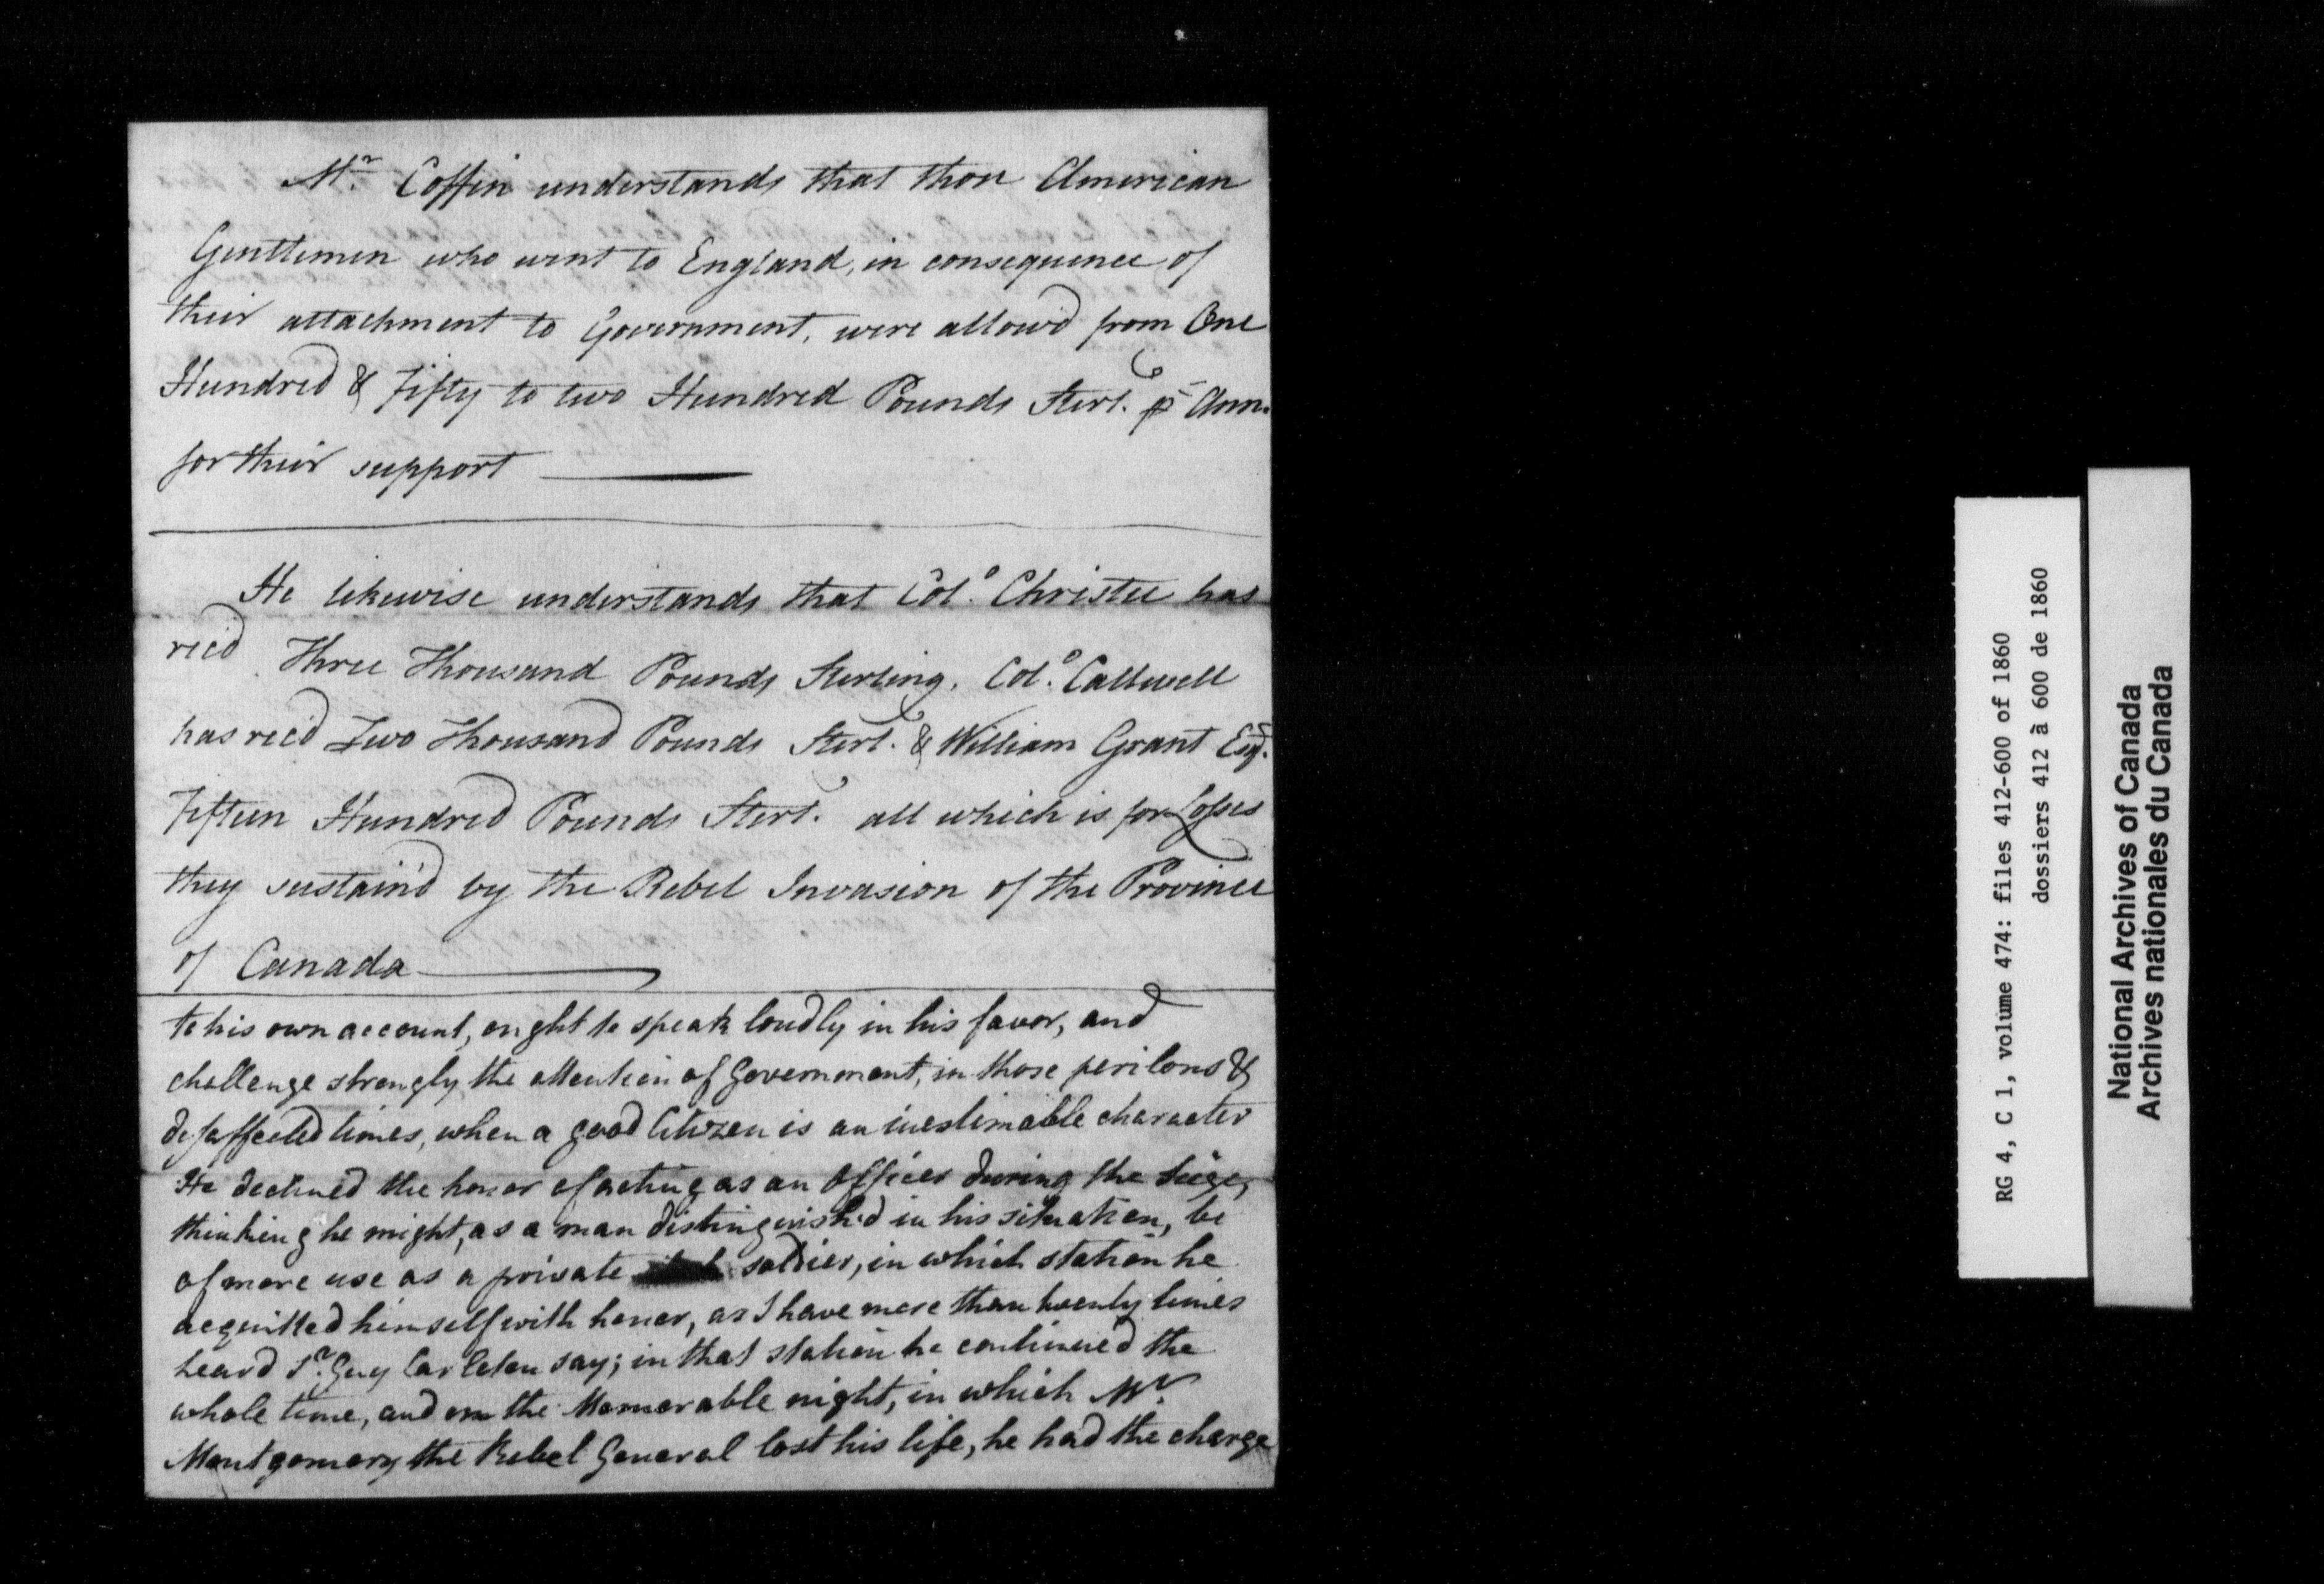 Mr. Coffin understands that those American
Gentlemen who went to England, in consequence of
their attachment to Government, were allow'd from One
Hundred & Fifty to two Hundred Pounds Sterl. pr Ann.
for their support
He likewise understands that Colo. Christie has
rec'd Three Thousand Pounds Sterling, Colo. Calldwell
has rec'd Two Thousand Pounds Sterl. & William Grant Esqr.
Fifteen Hundred Pounds Sterl. all which is for Losses
they sustain'd by the Rebel Invasion of the Province
of Canada
to his own account, ought to speak loudly in his favor, and
challenge strongly the attention of Government, in those perilous &
disaffected times, when a good Citizen is an inestimable character
He declined the honor of acting as an Officer during the Siege,
thinking he might, as a man distinguish'd in his situation, be
of more use as a private soldier, in which station he
acquitted himself with honor, as I have more than twenty times
heard Sr. Guy Carleton say; in that station he continued the
whole time, and on the Memorable night, in which Mr.
Montgomery the Rebel General lost his life, he had the charge
RG 4, C 1, volume 474: files 412-600 of 1860
dossiers 412 à 600 de 1860
National Archives of Canada
Archives nationales du Canada